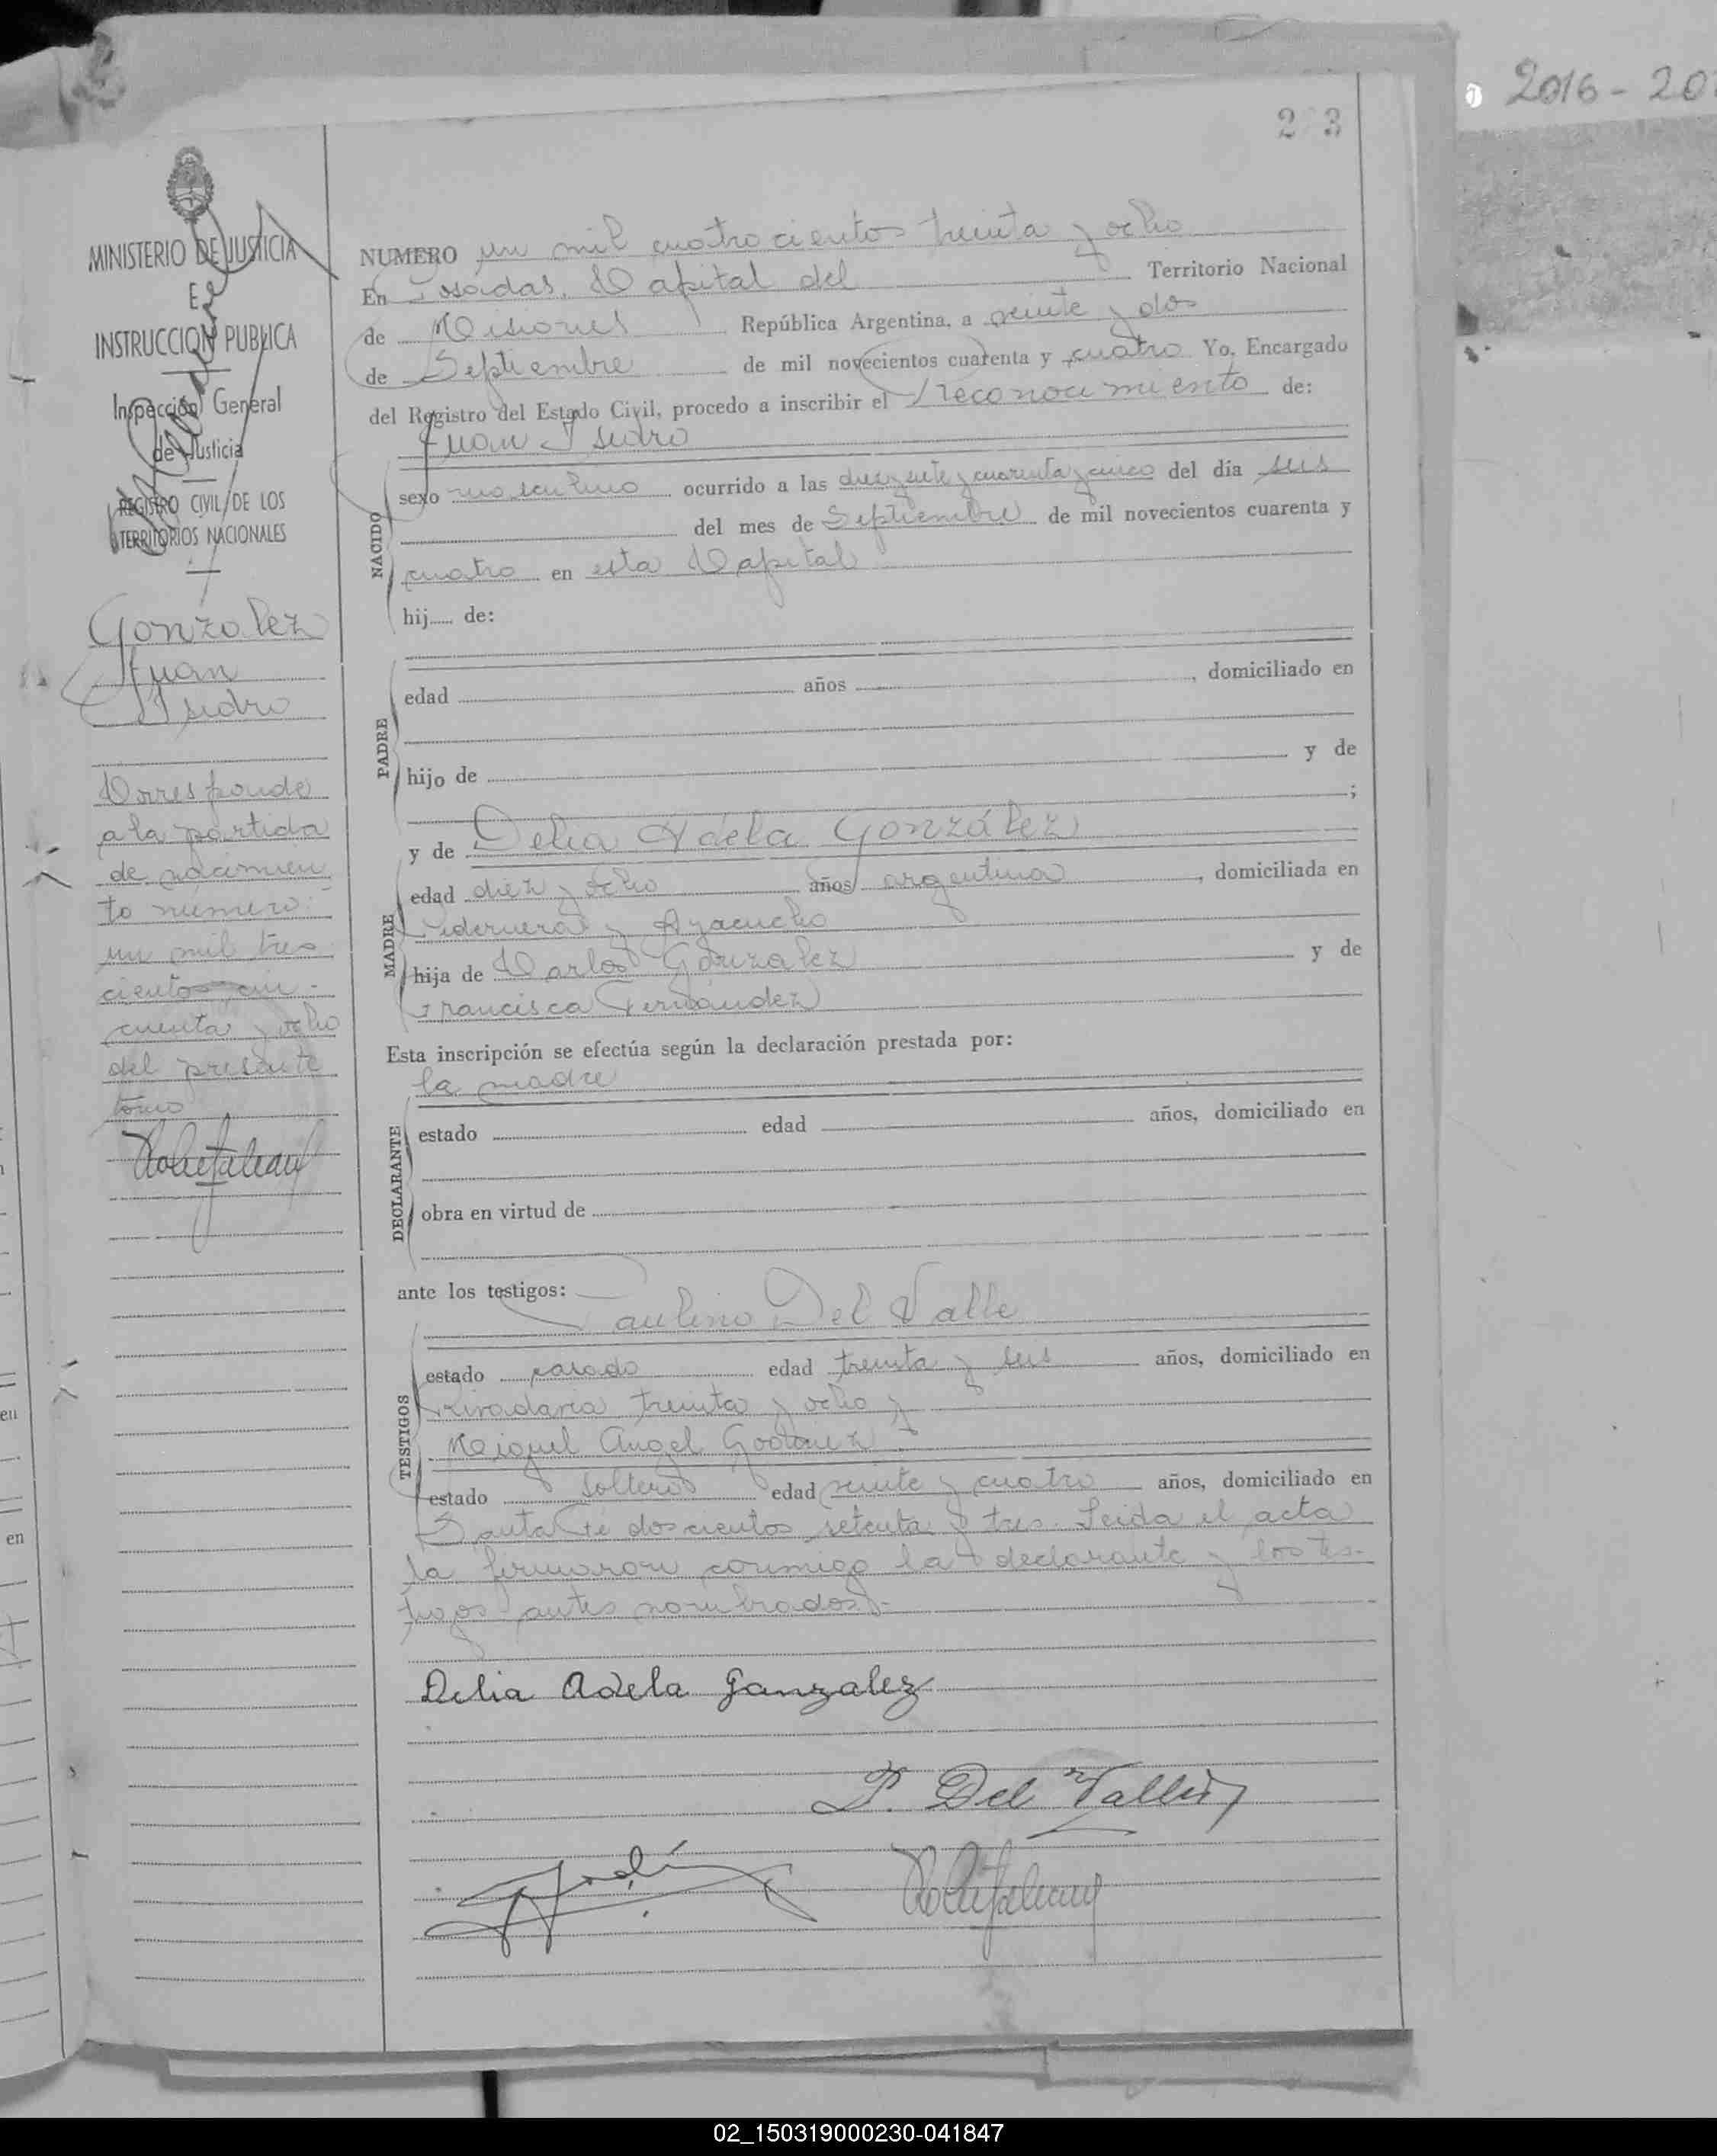 2016-20
2 3
MINISTERIO DE JUSTICIA
E
INSTRUCCION PUBLICA
Inspección General
de Justicia
REGISTRO CIVIL DE LOS
TERRITORIOS NACIONALES
Gonzalez
Juan
Isidro
Corresponde
a la partida
de nacimien
to numero:
un mil tres
cientos cin-
cuenta y ocho
del presente
tomo
NUMERO un mil cuatrocientos treinta y ocho
En Posadas, Capital del Territorio Nacional
de Misiones República Argentina, a veinte y dos
de Septiembre de mil novecientos cuarenta y cuatro Yo, Encargado
del Registro del Estado Civil, procedo a inscribir el reconocimiento de:
Juan Isidro
NACIDO
sexo masculino ocurrido a las diez y siete y cuarenta y cinco del día seis
del mes de Septiembre de mil novecientos cuarenta y
cuatro en esta Capital
hij..... de:
PADRE
edad años , domiciliado en
hijo de y de
;
y de Delia Adela González
MADRE
edad diez y ocho años argentina , domiciliada en
Pedernera y Ayacucho
hija de Carlos González y de
Francisca Fernández
Esta inscripción se efectúa según la declaración prestada por:
la madre
DECLARANTE
estado edad años, domiciliado en
obra en virtud de
ante los testigos:
Paulino Del Valle
TESTIGOS
estado casado edad treinta y seis años, domiciliado en
Rivadavia treinta y ocho y
Miguel Angel
estado soltero edad veinte y cuatro años, domiciliado en
Santa Fe doscientos setenta y tres. Leida el acta
la firmaron conmigo la declarante y los tes-
tigos antes nombrados.-
Delia Adela Gonzalez
P. Del Valle
en
en
02_150319000230-041847